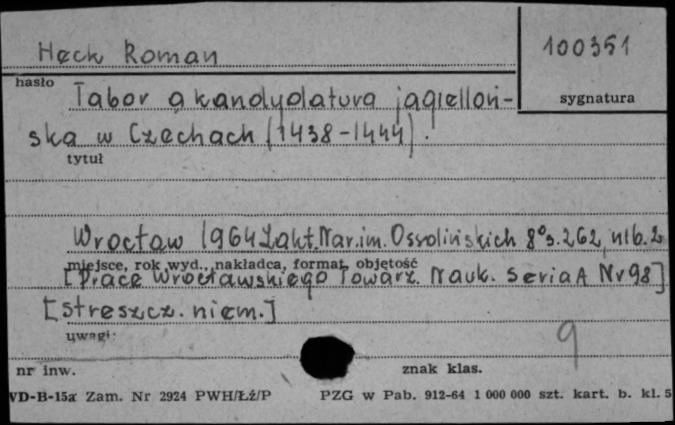 Heck Roman
100351
hasło
sygnatura
Tabor a kandydatura jagielloń-
ska w Czechach (1438-1444).
tytuł
Wrocław 1964 Zakt. Nar. im. Ossolińskich 8° s. 262, nlb. 2
miejsce, rok wyd., nakładca, format, objętość
[Prace Wrocławskiego Towarz. Nauk. Seria A Nr 98]
[streszcz. niem.]
uwagi:
9
nr inw.
znak klas.
VD-B-15a Zam. Nr 2924 PWH/Łź/P
PZG w Pab. 912-64 1 000 000 szt. kart. b. kl. 5